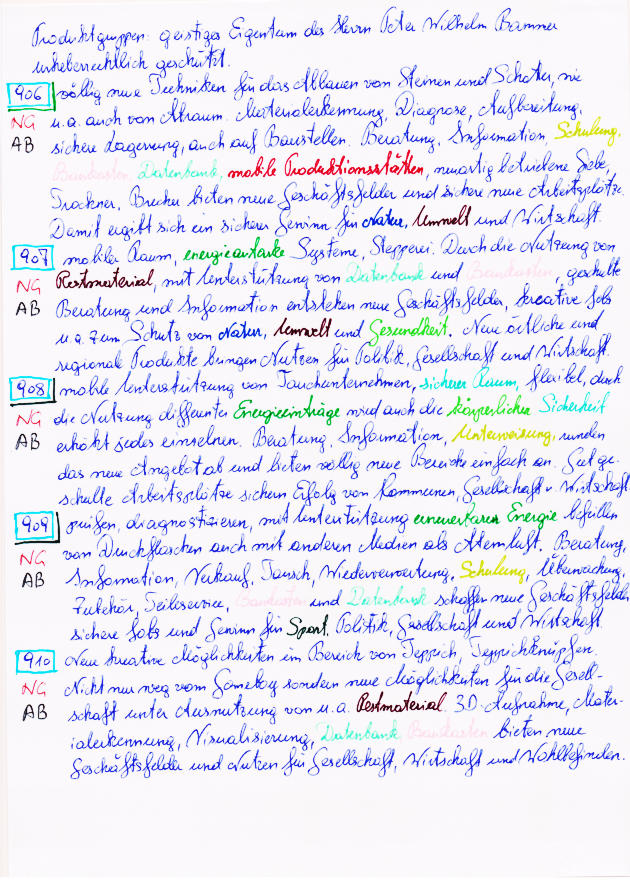 Produktgruppen: geistiges Eigentum des Herrn Peter Wilhelm Bammer
urheberrechtlich geschützt.
906 völlig neue Techniken für das Abbauen von Steinen und Schotter, wie
NG u.a. auch von Abraum. Materialerkennung, Diagnose, Aufbereitung,
AB sichere Lagerung, auch auf Baustellen. Beratung, Information, Schulung,
Baukasten, Datenbank, mobile Produktionsstätten, neuartig betriebene Siebe,
Trockner, Brecher bieten neue Geschäftsfelder und sichere neue Arbeitsplätze.
Damit ergibt sich ein sicherer Gewinn für Natur, Umwelt und Wirtschaft.
907 mobiler Raum, energieautarke Systeme, Stepperei. Durch die Nutzung von
NG Restmaterial, mit Unterstützung von Datenbank und Baukasten, geschulte
AB Beratung und Information entstehen neue Geschäftsfelder, kreative Jobs
u.a. zum Schutz von Natur, Umwelt und Gesundheit. Neue örtliche und
regionale Produkte bringen Nutzen für Politik, Gesellschaft und Wirtschaft.
908 mobile Unterstützung von Tauchunternehmen, sicherer Raum, flexibel, durch
NG die Nutzung differenter Energieeinträge wird auch die körperliche Sicherheit
AB erhöht jedes einzelnen. Beratung, Information, Unterweisung, runden
das neue Angebot ab und bieten völlig neue Bereiche einfach an. Gut ge-
schulte Arbeitsplätze sichern Erfolg von Kommunen, Gesellschaft u. Wirtschaft
909 prüfen, diagnostizieren, mit Unterstützung erneuerbarer Energie befüllen
NG von Druckflaschen auch mit anderen Medien als Atemluft. Beratung,
AB Information, Verkauf, Tausch, Wiederverwertung, Schulung, Überwachung,
Zubehör, Teileservice, Baukasten und Datenbank schaffen neue Geschäftsfelder
sichere Jobs und Gewinn für Sport, Politik, Gesellschaft und Wirtschaft
910 Neue kreative Möglichkeiten im Bereich von Teppich, Teppichknüpfen.
NG Nicht nur weg vom Gameboy sondern neue Möglichkeiten für die Gesell-
AB schaft unter Ausnutzung von u.a. Restmaterial. 3D-Aufnahme, Mater-
ialerkennung, Visualisierung, Datenbank Baukasten bieten neue
Geschäftsfelder und Nutzen für Gesellschaft, Wirtschaft und Wohlbefinden.